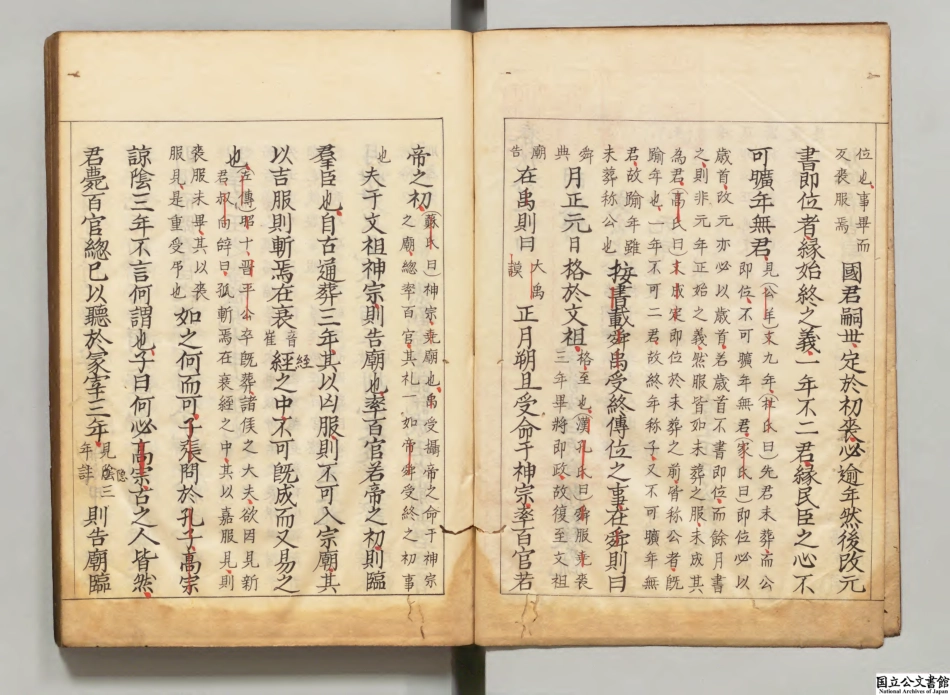 位也事畢而
反喪服焉
國君嗣世定於初喪必逾年然後改元
書即位者緣始終之義一年不二君緣民臣之心不
可曠年無君
見(公羊)文九年(林氏曰)先君未葬而公
即位不可曠年無君(家氏曰)即位必以
歲首改元亦必以歲首若歲首不書即位而餘月書
之則非元年正始之義然服皆如未葬之服未成其
為君(高氏曰)未成喪即位於未葬之前皆称公者既
踰年也一年不可二君故終年称子又不可曠年無
君故踰年雖
未葬称公也
按書載舜禹受終傳位之事在舜則曰
舜
典
月正元日格於文祖
格至也(漢孔氏曰)舜服堯喪
三年畢將即政故復至文祖
廟
告
在禹則曰
大禹
謨
正月朔旦受命于神宗率百官若
帝之初
(蘇氏曰)神宗堯廟也禹受攝帝之命于神宗
之廟總率百官其札一如帝舜受終之初事
也
夫于文祖神宗則告廟也率百官若帝之初則臨
羣臣也自古通葬三年其以凶服則不可入宗廟其
以吉服則斬焉在衰
音
崔
經
絰
之中不可既成而又易之
也
(左傳)昭十晋平公卒既葬諸侯之大夫欲因見新
君叔向辞曰孤斬焉在衰經之中其以嘉服見則
喪服未畢其以喪
服見是重受吊也
如之何而可子張問於孔子高宗
諒陰三年不言何謂也子曰何必高宗古之人皆然
君薨百官總已以聽於冢宰三年
見陰三
年註
隐
則告廟臨
国立公文書館
National Archives of Japan